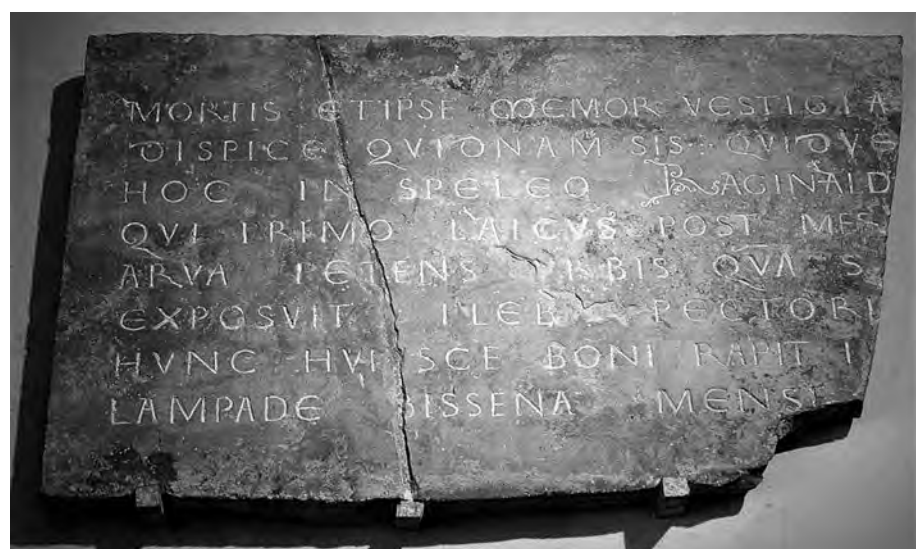 MORTIS ETIPSE MEMOR VESTIGIA
DISPICE QVIDNAM SIS
HOC IN SPELEO RAGINALD
QVI PRIMO LAICVS POST
ARVA PETENS VRBIS QVA S
EXPOSVIT PLEBI PECTORI
HVNC HVI SCE BONI RAPIT I
LAMPADE BISSENA MENSI